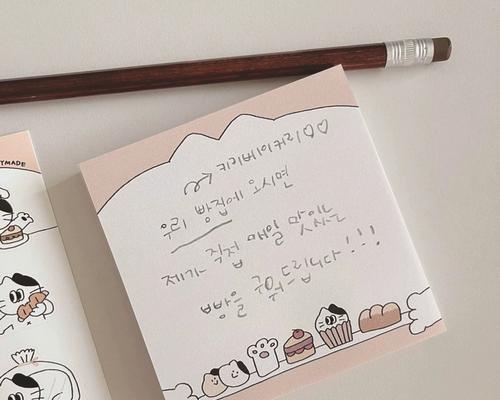 YMADE
키키베이커리♡♡
우리 빵집에 오시면
제가 직접 매일 맛있는
빵을 구워드립니다!!!